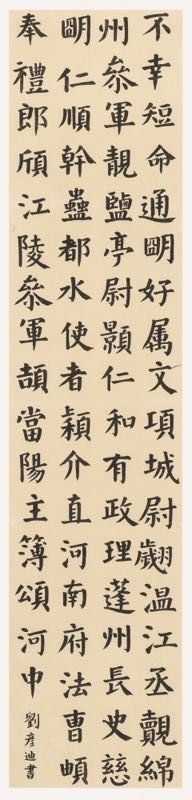 不幸短命通眀好属文項城尉翽温江丞覿綿
州叅軍靚鹽亭尉顥仁和有政理蓬州長史慈
眀仁順幹蠱都水使者穎介直河南府法曹頔
奉禮郎頎江陵叅軍頡當陽主簿頌河中
劉彦迪書